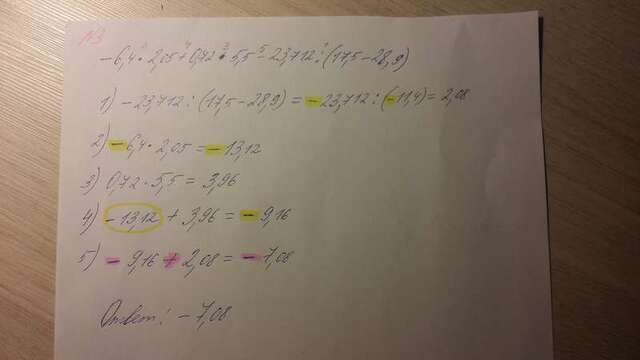 №3
-6,4 · 2,05 + 0,72 · 5,5 - 23,712 : (17,5 - 28,9)
1) - 23,712 : (17,5 - 28,9) = - 23,712 : (- 11,4) = 2,08
2) - 6,4 · 2,05 = - 13,12
3) 0,72 · 5,5 = 3,96
4) - 13,12 + 3,96 = - 9,16
5) - 9,16 + 2,08 = - 7,08
Ответ: - 7,08